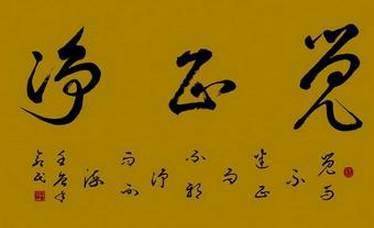 觉正净
觉而
不
迷正
而
不邪
净
而不
染